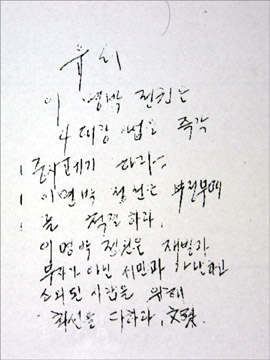 이 명박 정권은
4대강 사업을 즉각
중지 폐기 하라.
이명박 정권은 부정부패
를 척결 하라.
이명박 정권은 재벌과
부자가 아닌 서민과 가난하고
소외된 사람을 위해
최선을 다하라, 文殊.